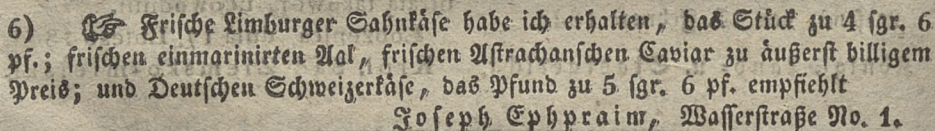 6) ☞ Frische Limburger Sahnkäse habe ich erhalten, das Stück zu 4 sgr. 6
pf.; frischen einmarinirten Aal, frischen Astrachanschen Caviar zu äußerst billigem
Preis; und Deutschen Schweizerkäse, das Pfund zu 5 sgr. 6 pf. empfiehlt
Joseph Ephpraim, Wasserstraße No. 1.